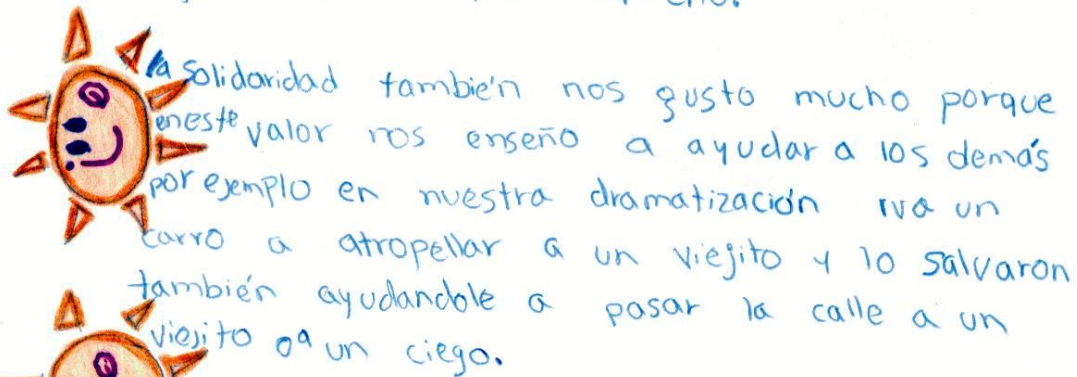 la solidaridad también nos gusto mucho porque
en este valor nos enseño a ayudar a los demás
por ejemplo en nuestra dramatización iva un
carro a atropellar a un viejito y lo salvaron
también ayudandole a pasar la calle a un
viejito o a un ciego.